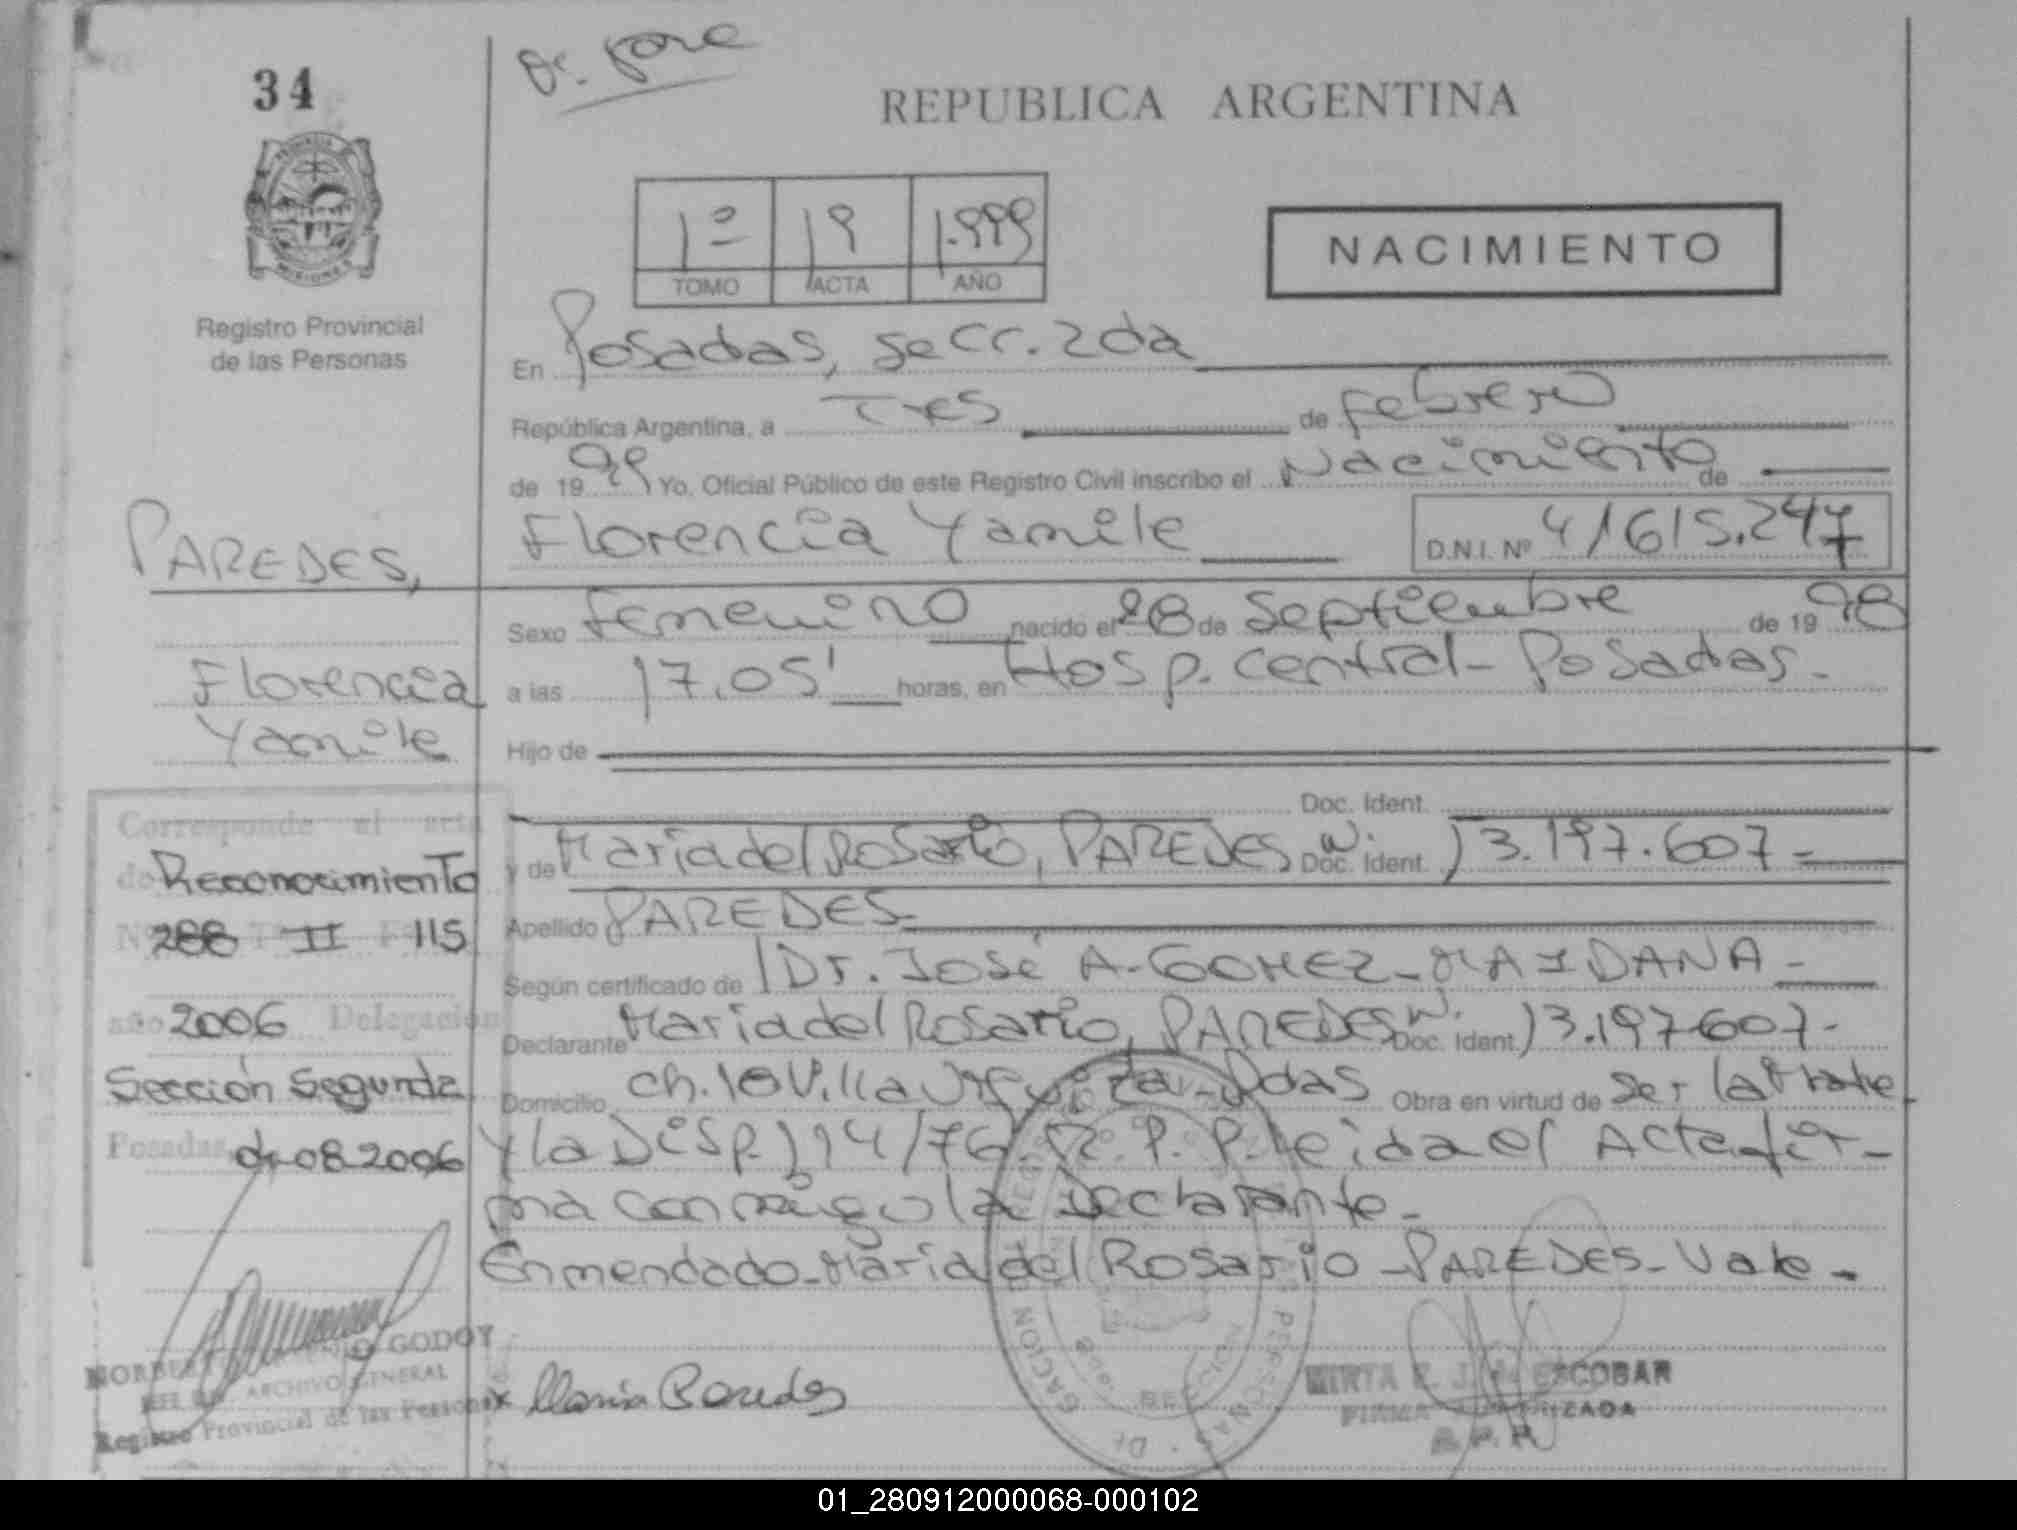 34
REPUBLICA ARGENTINA
1º 19 1.999
TOMO ACTA AÑO
NACIMIENTO
MISIONES
Registro Provincial
de las Personas
En Posadas, secc. 2da
República Argentina, a Tres de febrero
de 1999 Yo, Oficial Público de este Registro Civil inscribo el Nacimiento de
Florencia Yamile D.N.I. Nº 41615.247
PAREDES,
Florencia
Yamile
Sexo femenino nacido el 28 de Septiembre de 1998
a las 17.05' horas, en Hosp. Central - Posadas -
Hijo de
Doc. Ident.
y de Maria del Rosario, PAREDES Doc. Ident. N. 13.197.607-
Apellido PAREDES-
Según certificado de Dr. José A. GOMEZ - MAIDANA -
Declarante Maria del Rosario, PAREDES Doc. Ident. N. 13.197607-
Domicilio ch. 10 Villa Urquiza - Pdas Obra en virtud de ser la
y la Disp. 114/76 R. P. P. leida el Acta fir-
ma conmigo la Declarante -
Enmendado - Maria del Rosario - PAREDES - Vale -
Corresponde al acta
de Reconocimiento
Nº 288 Tº II Fº 115
año 2006 Delegación
Sección Segunda
Posadas 08 2006
GODOY
ARCHIVO GENERAL
Registro Provincial de las Personas
Maria Paredes
MIRTA ESCOBAR
FIRMA AUTORIZADA
R.P.P.
01_280912000068-000102